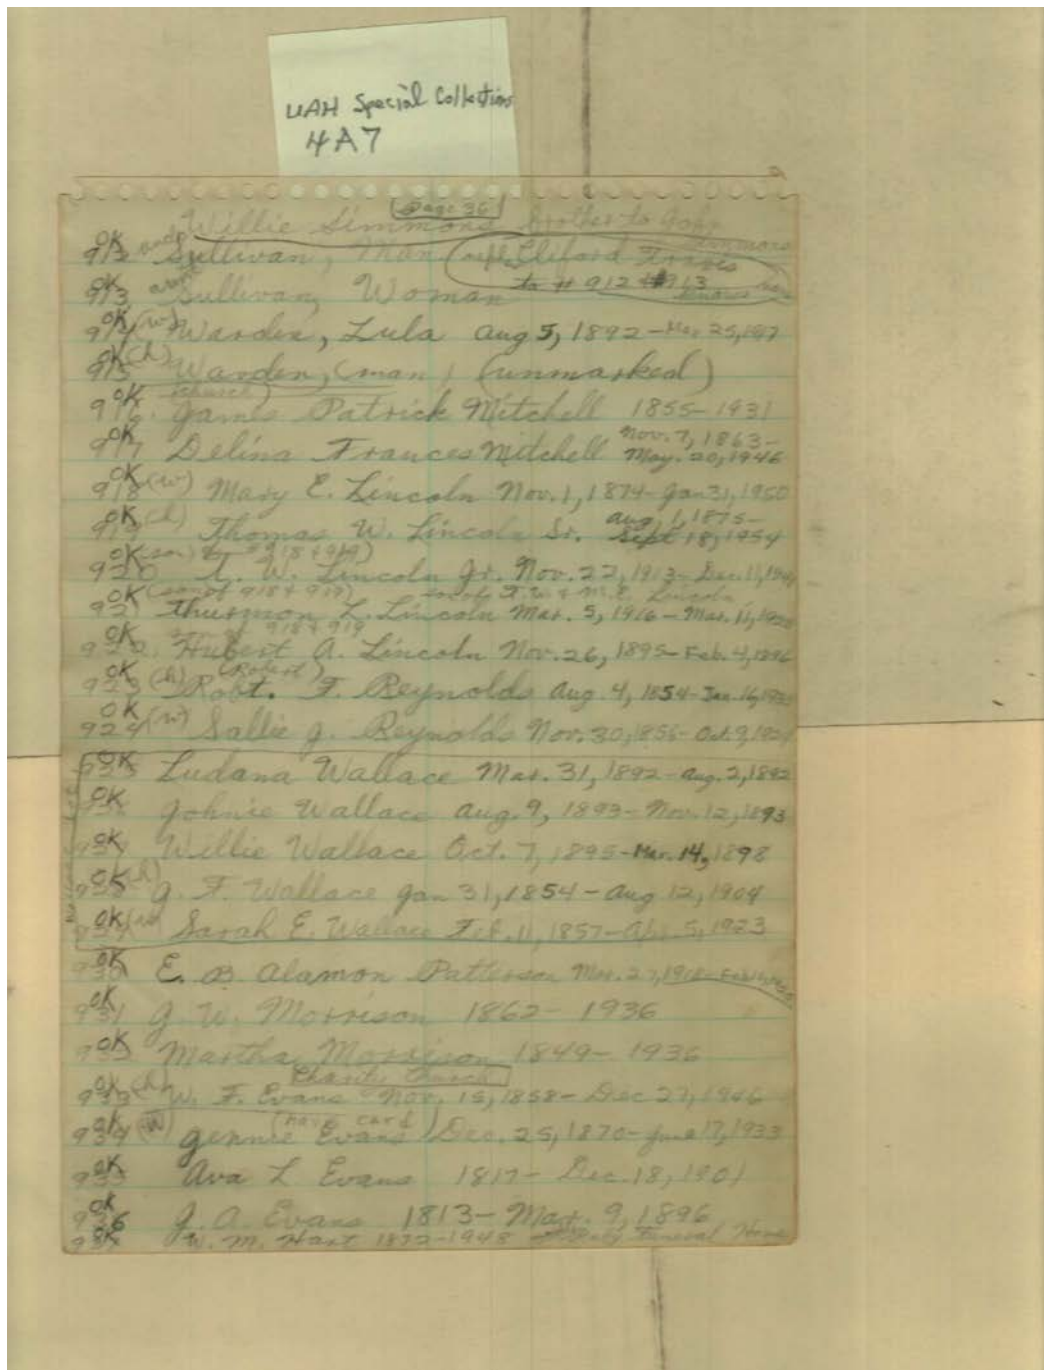 UAH Special Collections
4A7
Page 36
Willie Simmons brother to
OK 912 Sullivan, Man (neph. Cliford Travis
OK 913 Sullivan, Woman to # 912 + #913
OK 914 (w) Warden, Lula Aug 5, 1892 – Mar. 25, 1947
OK 915 (h) Warden, (man) (unmarked)
(church)
OK 916. James Patrick Mitchell 1855–1931
OK 917 Delina Frances Mitchell Nov. 7, 1863– May. 20, 1946
OK 918 (w) Mary E. Lincoln Nov. 1, 1874– Jan 31, 1950
OK 919 (h) Thomas W. Lincoln Sr. Aug. 1, 1875– Sept 18, 1954
(son) 918 + 919)
OK 920 T. W. Lincoln Jr. Nov. 22, 1913– Dec. 11,
(son of 918 + 919) son of T. W. + M. E. Lincoln
OK 921 Thurmon L. Lincoln Mar. 5, 1916 – Mar. 11,
918 + 919
OK 922. Hubert A. Lincoln Nov. 26, 1895– Feb. 4, 1896
(Robert)
OK 923 (h) Robt. F. Reynolds Aug. 4, 1854– Jan. 16,
OK 924 (w) Sallie J. Reynolds Nov. 30, 1856– Oct. 9,
OK 925 Ludana Wallace Mar. 31, 1892– Aug. 2, 1892
OK 926 Johnie Wallace Aug. 9, 1893– Nov. 12, 1893
OK 927 Willie Wallace Oct. 7, 1895–Mar. 14, 1898
OK 928 (h) J. F. Wallace Jan 31, 1854 – Aug 12, 1904
OK 929 (w) Sarah E. Wallace Feb. 11, 1857– Apr. 5, 1923
OK 930 E. B Alamon Patterson Mar. 27,
OK 931 J. W. Morrison 1862– 1936
OK 932 Martha Morrison 1849– 1936
Charity Church
OK 933 (h) W. F. Evans Nov. 15, 1858– Dec 27, 1946
(have card)
OK 934 (w) Jennie Evans Dec. 25, 1870– June 17, 1933
OK 935 Ava L Evans 1817– Dec. 18, 1901
OK 936 J. A. Evans 1813– Mar. 9, 1896
OK 937 W. M. Hart 1872–1948 Funeral Home